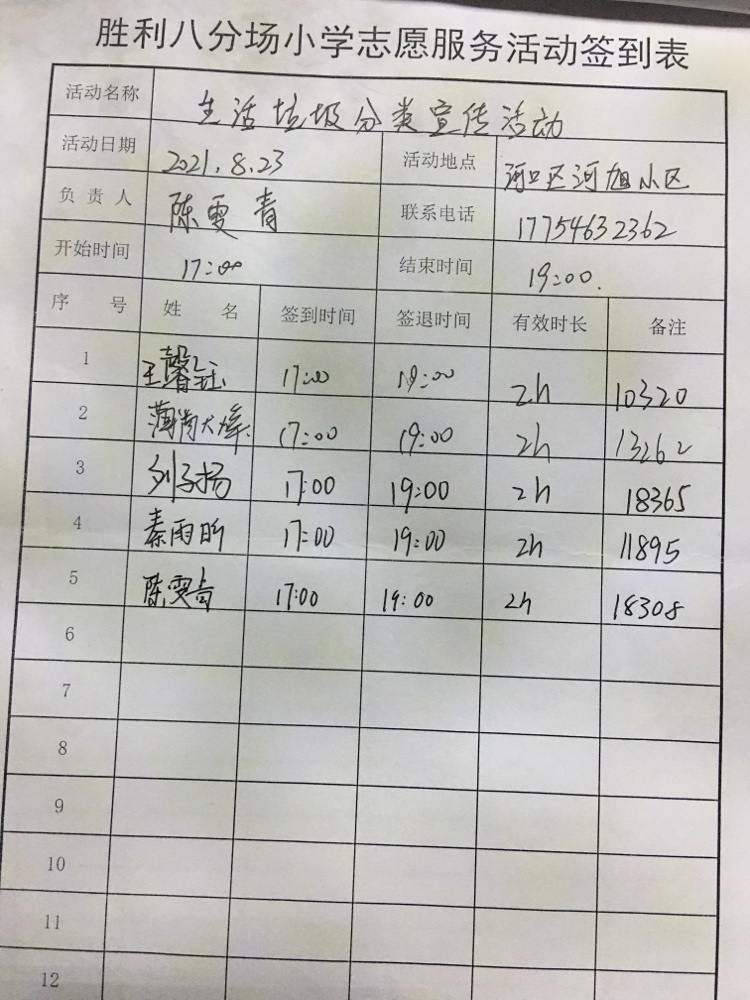 胜利八分场小学志愿服务活动签到表
活动名称 生活垃圾分类宣传活动
活动日期 2021.8.23 活动地点 河口区河旭小区
负责人 陈雯青 联系电话 17754632362
开始时间 17:00 结束时间 19:00.
序号 姓名 签到时间 签退时间 有效时长 备注
1 王馨钰 17:00 19:00 2h 10320
2 17:00 19:00 2h 13262
3 刘子扬 17:00 19:00 2h 18365
4 秦雨昕 17:00 19:00 2h 11895
5 陈雯青 17:00 19:00 2h 18308
6
7
8
9
10
11
12